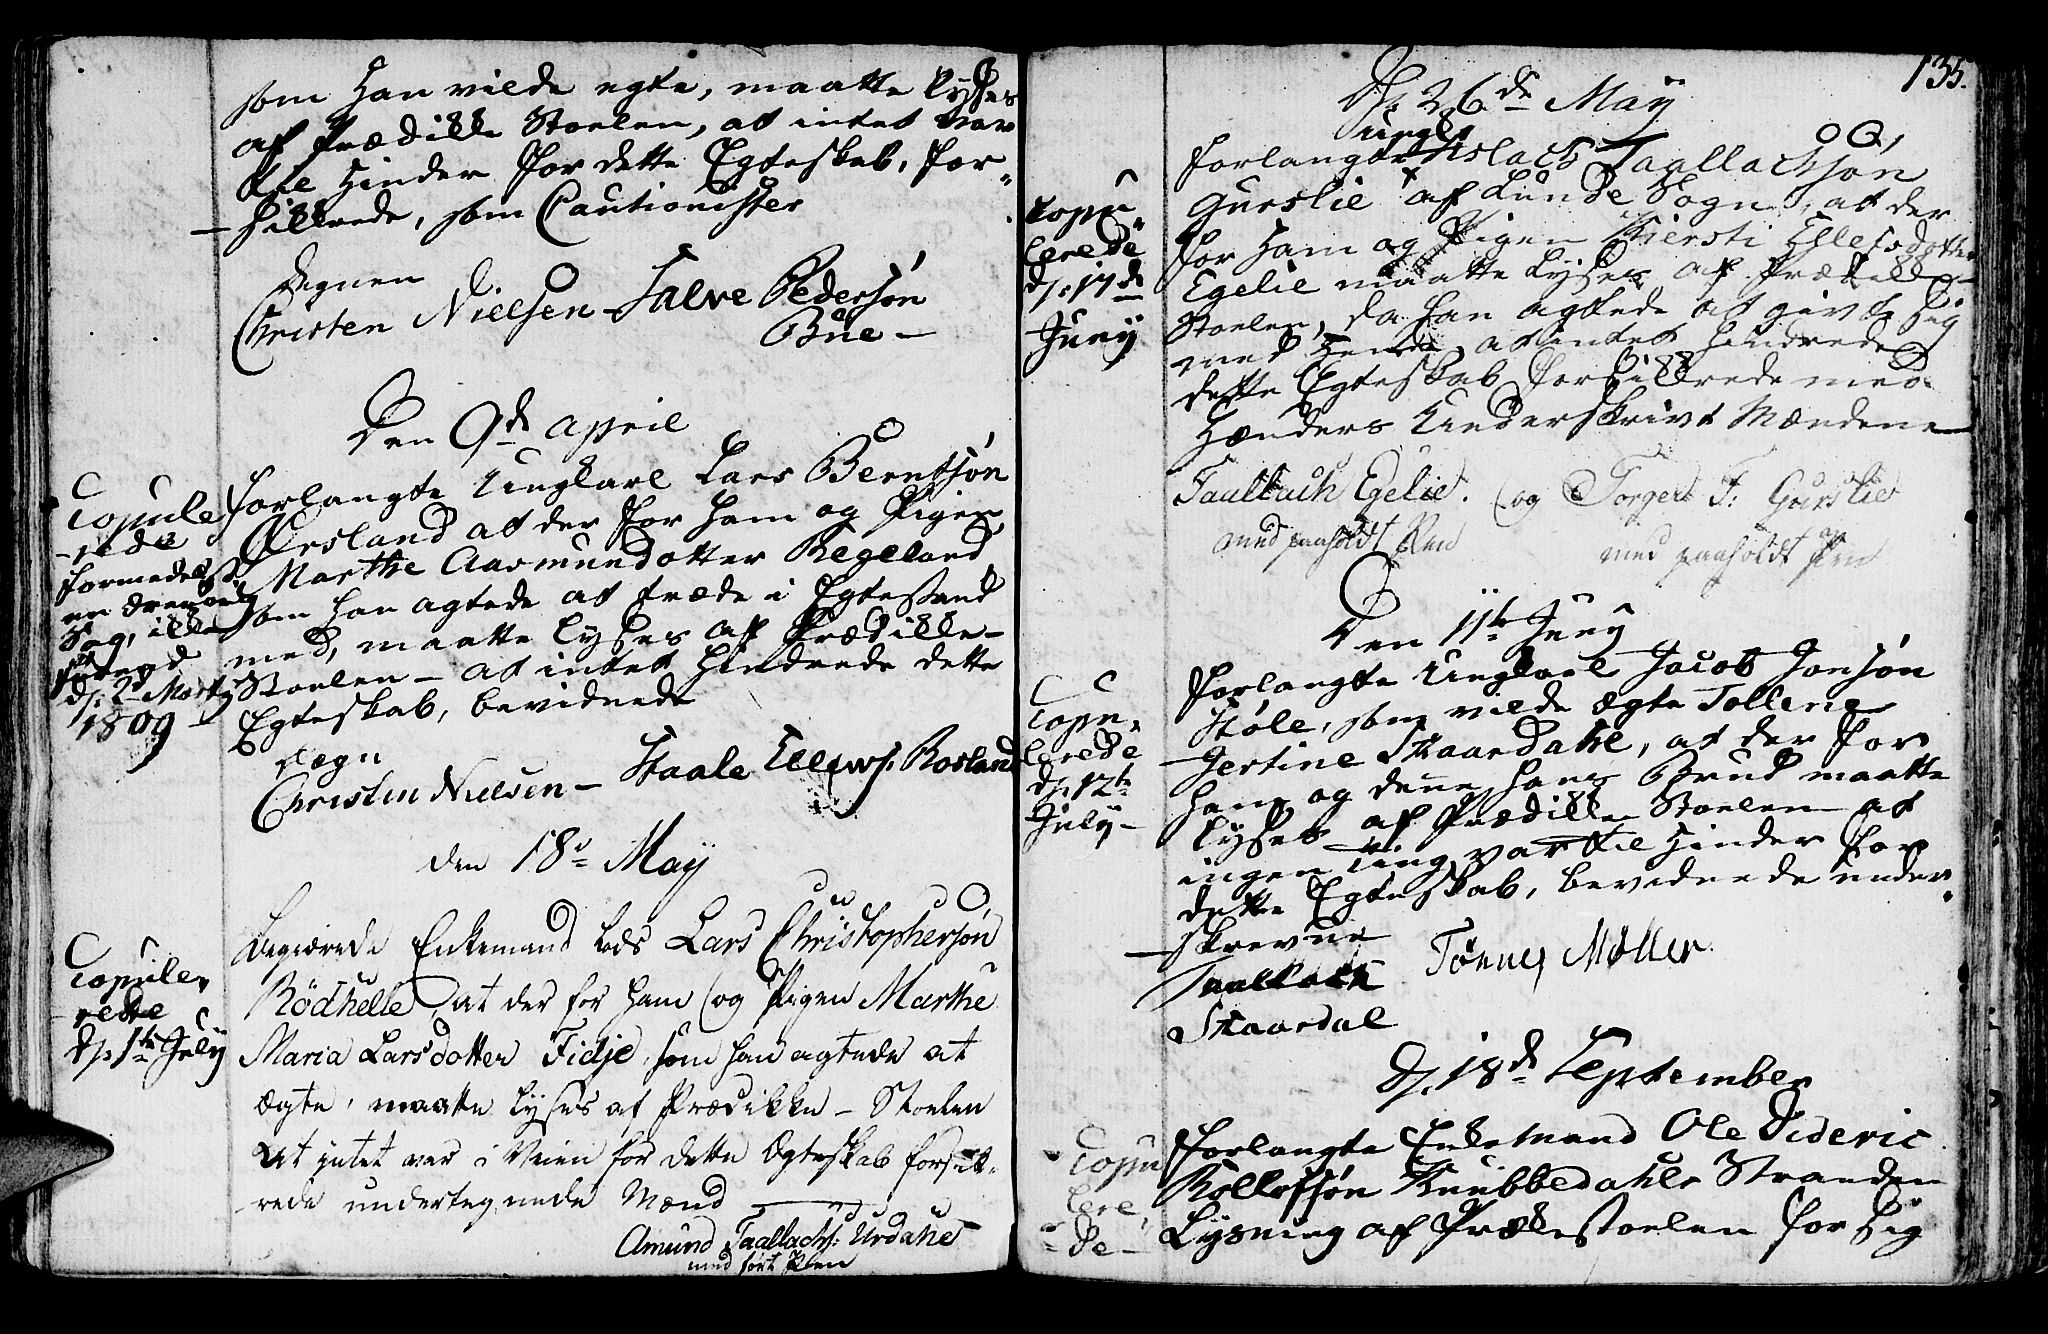 som han vilde egte, maatte lyses
af Prædike Stoelen, at intet var
til Hinder for dette Egteskab, for-
sikkrede, som Cautionister
Degnen
Christen Nielsen - Salve Pedersøn
Bue -
Den 9de April
Copule
-rede
formedelst
en
Sag, ikke
førend
d: 2d Marty
1809 -
forlangte Ungkarl Lars Berntsøn
Ørsland at der for ham og Pigen
Marthe Aasmundotter Regeland
som han agtede at træde i Egtestand
med, maatte lyses af Prædike-
Stoelen - at intet hindrede dette
Egteskab, bevidnede
Degn
Christen Nielsen - Staale Ellevs: Rosland
den 18d May
Copule-
rede
d: 1te July
Begiærede Enkemand Lods Lars Christophersøn
Rödhelle, at der for ham og Pigen Marthe
Maria Larsdotter Fidje, som han agtede at
ægte, maatte lyses af Prædikke-Stoelen
At intet var i Veien for dette Ægteskab forsik-
rede undertegnede Mænd
Amund Taallachs: Urdahl
med ført Pen
135.
D: 26de May
Copu-
lerede
d: 17de
Juny
forlangte Ungk Aslach Taallachsøn
Gurslie af Lunde Sogn, at der
for ham og Pigen Kiersti Ellefsdotter
Egelie maatte lyses af Prædike-
Stoelen, da han agtede at givte sig
med Hende, at intet hindrede
dette Egteskab forsikkrede med
Hænders Underskrivt Mændene
Taallach Egelie. og Torger T: Gurslie
med paaholdt Pen
med paaholdt Pen
Den 11te Juny
Copu-
lerede
d: 12te
July -
forlangte Ungkarl Jacob Jonsøn
Støle, som vilde ægte Tollene
Gertine Skaardahl, at der for
ham og denne hans Brud maatte
lyses af Prædike Stoelen at
ingen Ting var til Hinder for
dette Egteskab, bevidnede under-
skrevne
Taallach
Skaardal
Tönnes Möller
D: 18de September
Copu
lere-
de -
forlangte Enkemand Ole Dideric
Rollofsøn Knubbedahls Stranden
Lysning af Prækestoelen for sig